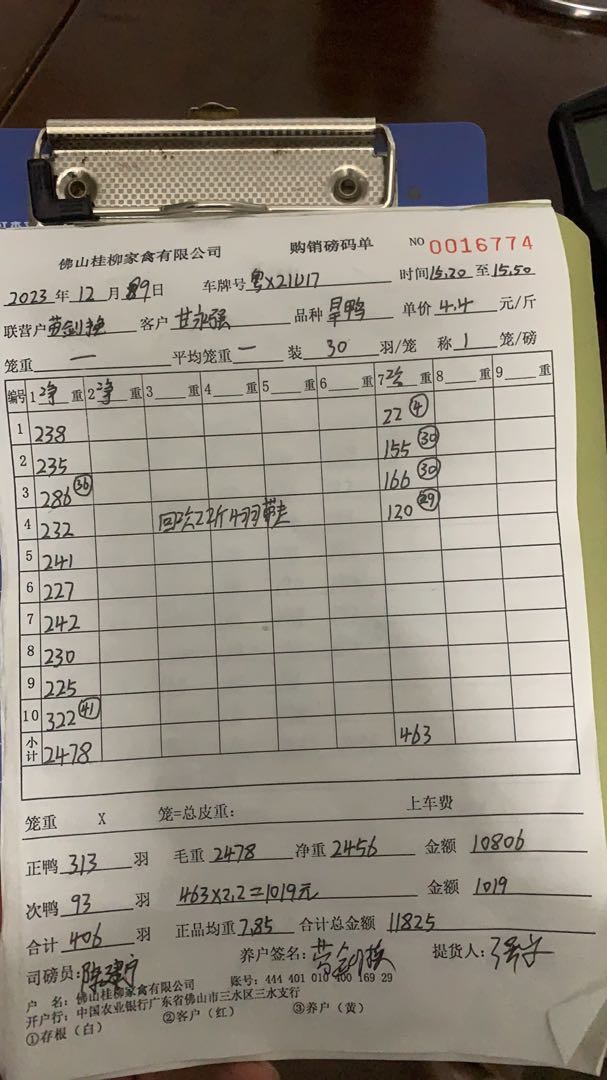 佛山桂柳家禽有限公司 购销磅码单 NO 0016774
2023 年 12 月 9 日 车牌号 粤X21U17 时间 15.20 至 15.50
联营户 黄剑挽 客户 甘永强 品种 旱鸭 单价 4.4 元/斤
笼重 一 平均笼重 一 装 30 羽/笼 称 1 笼/磅
编号 1 净 重 2 净 重 3 重 4 重 5 重 6 重 7 次 重 8 重 9 重
1 238 22 ④
2 235 155 (30)
3 286 (36) 166 (30)
4 232 回次22斤4羽 120 (29)
5 241
6 227
7 242
8 230
9 225
10 322 (41)
小计 2478 463
笼重 X 笼=总皮重: 上车费
正鸭 313 羽 毛重 2478 净重 2456 金额 10806
次鸭 93 羽 463×2.2=1019元 金额 1019
合计 406 羽 正品均重 7.85 合计总金额 11825
司磅员: 养户签名: 提货人:
户 名: 佛山桂柳家禽有限公司 账号: 444 401 010 400 169 29
开户行: 中国农业银行广东省佛山市三水区三水支行
①存根(白) ②客户(红) ③养户(黄)